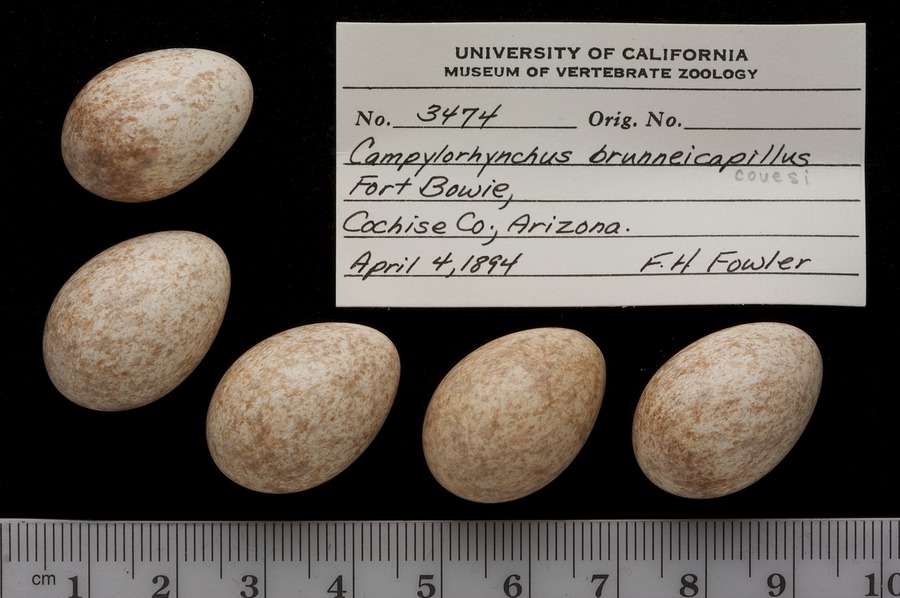 UNIVERSITY OF CALIFORNIA
MUSEUM OF VERTEBRATE ZOOLOGY
No. 3474 Orig. No.
Campylorhynchus brunneicapillus
couesi
Fort Bowie,
Cochise Co., Arizona.
April 4, 1894 F.H Fowler
cm 1 2 3 4 5 6 7 8 9 10